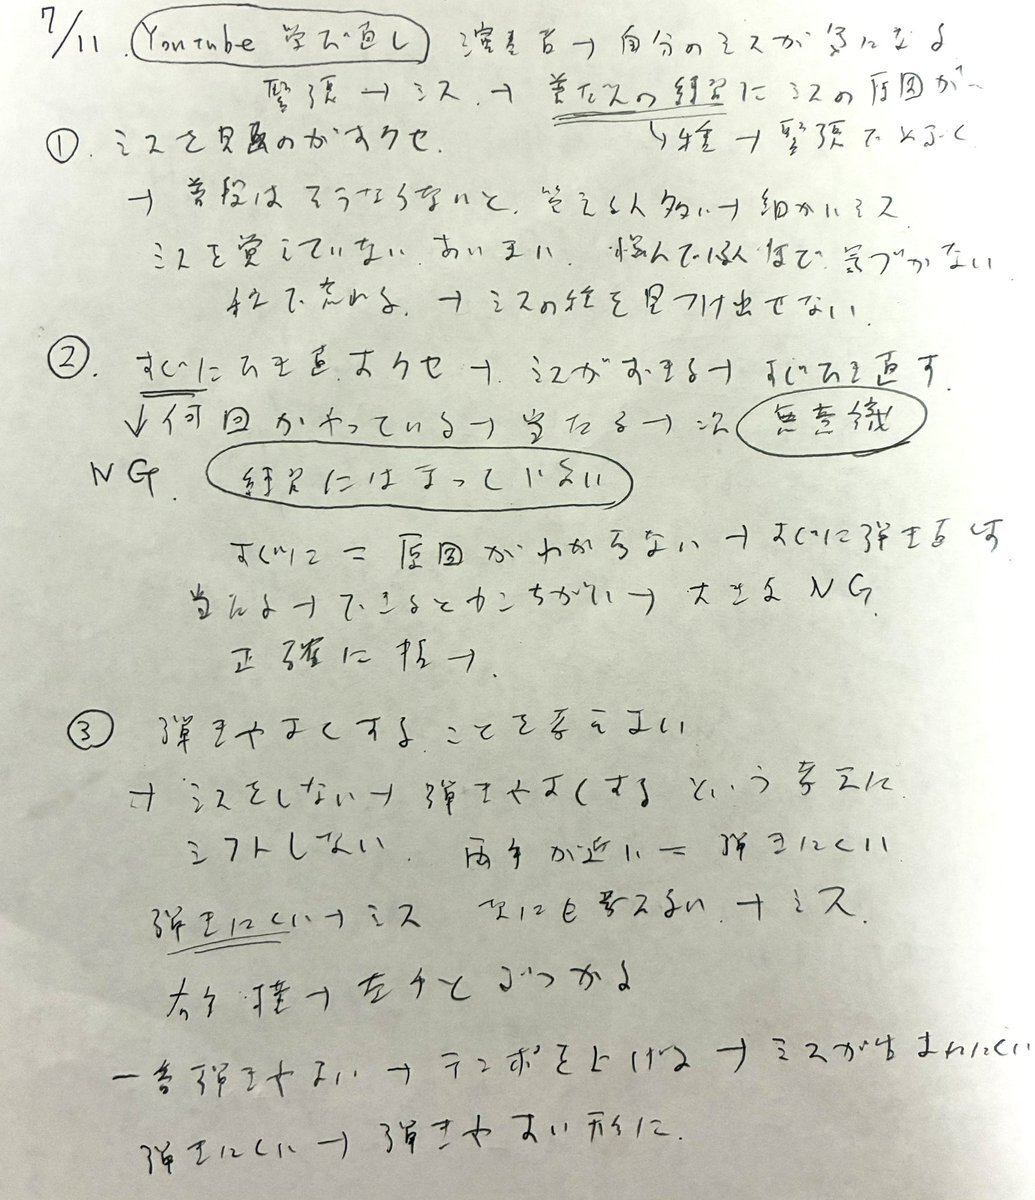 7/11. Youtube 学び直し 演奏者→自分のミスが気になる
緊張→ミス→普だんの練習にミスの原因が
① ミスを見逃のがすクセ.
↳種→緊張で
→普段はそうならないと、覚える人多い→細かいミス
ミスを覚えていない あいまい. 悩んで 気づかない
→ミスの種を見つけ出せない.
②. すぐにひき直すクセ→ミスがおきる→すぐひき直す.
↓何回かやっている→当たる→次 無意識
NG. 練習にはまっていない
すぐに=原因がわからない→すぐに弾き直す
当たる→できるとかんちがい→大きな NG.
正確に
③ 弾きやすくすることを考えない
→ミスをしない→弾きやすくするという考えに
シフトしない. 両手が近い=弾きにくい
弾きにくい→ミス 考えない.→ミス.
右手 →左手とぶつかる
一番弾きやすい→テンポを上げる→ミスが生まれにくい
弾きにくい→弾きやすい形に.